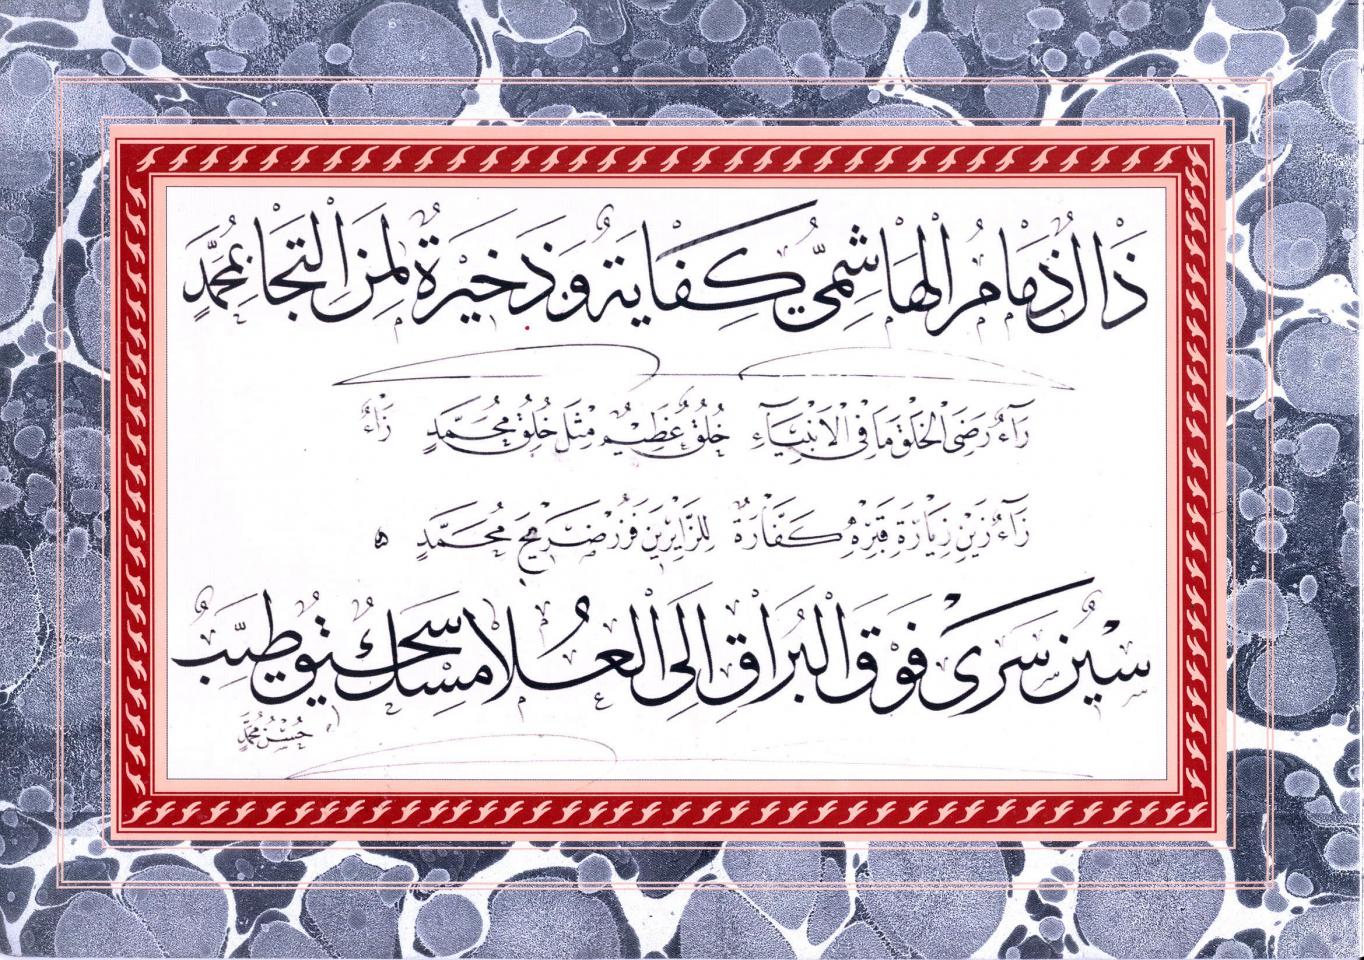 ذَالٌ ذِمَامُ الْهَاشِمِيِّ كِفَايَةٌ وَذَخِيرَةٌ لِمَنِ الْتَجَا بِمُحَمَّدٍ
رَآءٌ رَضِيُّ الْخَلْقِ مَا فِي الْأَنْبِيَآءِ خُلُقٌ عَظِيمٌ مِثْلَ خُلْقِ مُحَمَّدٍ زَاءٌ
زَآءٌ زَيْنٌ زِيَارَةُ قَبْرِهِ كَفَّارَةٌ لِلزَّايِرِينَ فَزُرْ ضَرِيحَ مُحَمَّدٍ ه
سِينٌ سَرَى فَوْقَ الْبُرَاقِ إِلَى الْعُلَا مِسْكٌ سَحِيقٌ طَيِّبٌ
حُسْنُ مُحَمَّدٍ